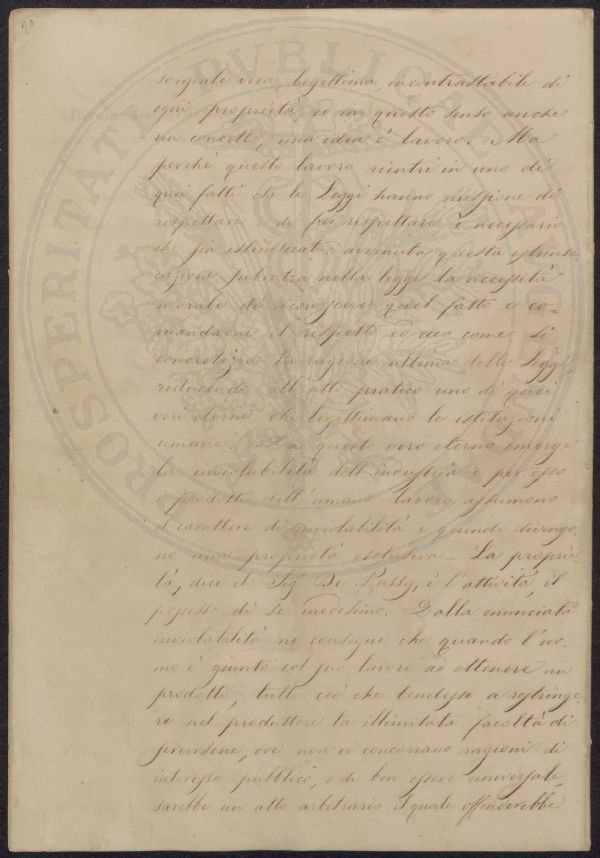 sorgente vera, legittima incontrastabile di
ogni proprietà, ed in questo senso anche
un concetto, una idea è lavoro. Ma
perchè questo lavoro rientri in uno di
quei fatti che le Leggi hanno missione di
rispettare e di far rispettare è necessario
che sia estrinsecato; avvenuta questa estrinse
cazione subentra nella legge la necessità
morale di riconoscere quel fatto e co-
mandarne il rispetto ed ecco come si
concretizza la ragione ultima delle Leggi
riducendo all'atto pratico uno di quei
veri eterni che legittimano le istituzioni
umane. Da questo vero eterno emerge
la inviolabilità dell'industria e per essa
i prodotti dell'umano lavoro assumono
il carattere di inviolabilità e quindi divengo
no una proprietà esclusiva_ La proprie
tà, dice il Sig De Passy, è l'attività, il
possesso di se medesimo. Dalla enunciata
inviolabilità ne consegue che quando l'uo-
mo è giunto col suo lavoro ad ottenere un
prodotto, tutto ciò che tendesse a restringe-
re nel produttore la illimitata facoltà di
servirsene, ove non vi concorrano ragioni di
interesse pubblico, e di ben essere universale,
sarebbe un atto arbitrario il quale offenderebbe
PROSPERITATI PVBLICAE